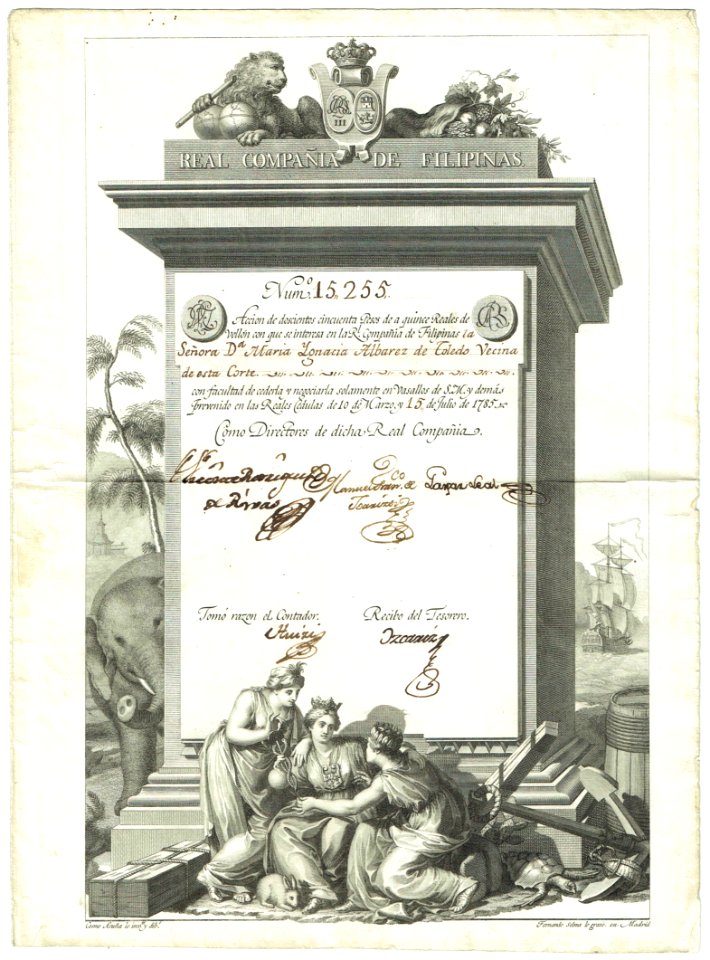 III
REAL COMPAÑIA DE FILIPINAS
Num.º 15,255.
Accion de doscientos cincuenta Pesos de a quince Reales de
vellón con que se interesa en la R.l Compañia de Filipinas la
Señora D.ª Maria Ygnacia Albarez de Toledo Vecina
de esta Corte
con facultad de cederla y negociarla solamente en Vasallos de S.M. y demás
prevenido en las Reales Cédulas de 10 de Marzo, y 15 de Julio de 1785.
Como Directores de dicha Real Compañia.
de Rivas
Tomó razon el Contador.
Recibo del Tesorero.
Cosme Acuña lo inv.ó y dib.ó
Fernando Selma lo gravó en Madrid